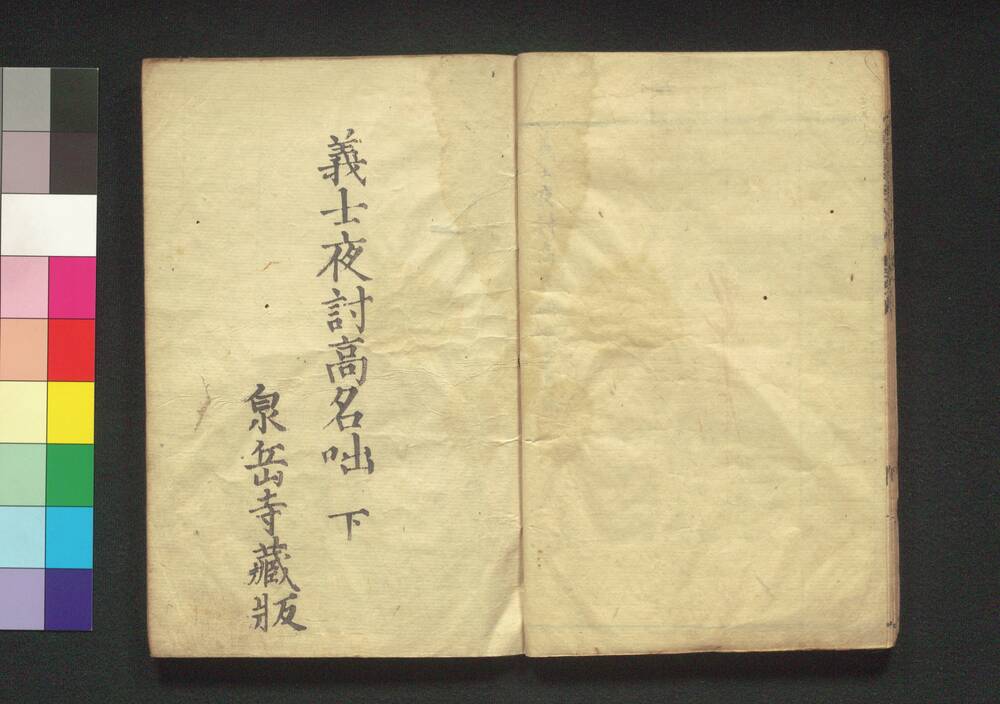 義士夜討高名咄 下
泉岳寺藏版